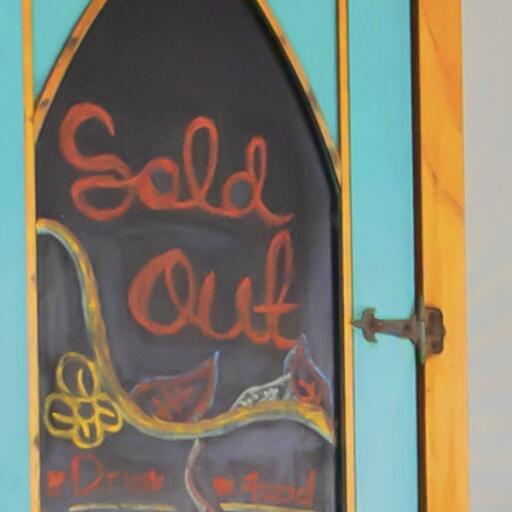 Sold
Out
Drink Food